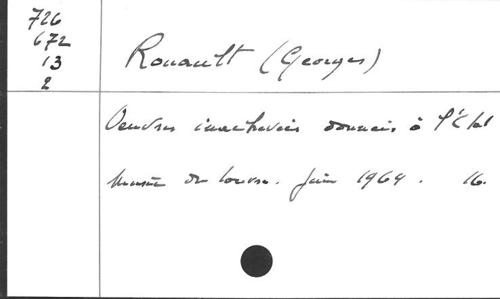 726
672
13
2
Rouault (Georges)
Oeuvres inachevées données à l'État
Musée du Louvre. Juin 1964. 16.